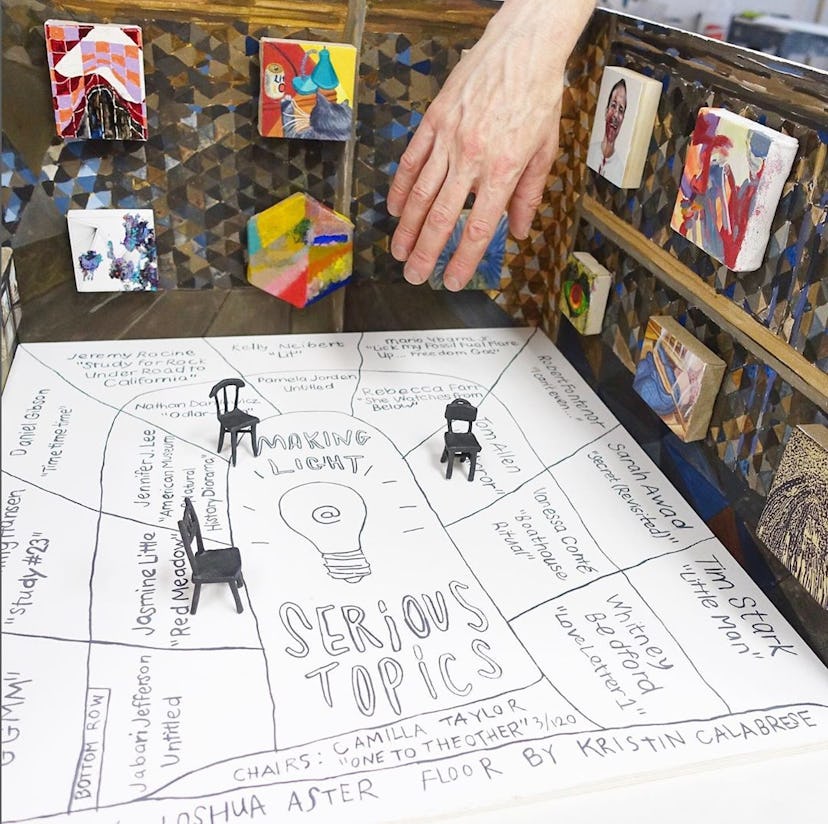 Jeremy Racine
"Study for Rock
Under Road to
California"
Kelly Neibert
"Lit"
Mario Ybarra Jr
"Lick my Fossil Fuel More
Up... Freedom Gas"
Robert Fontenot
"I can't even..."
Daniel Gibson
"Time time time"
Nathan
"Odlar
Pamela Jorden
Untitled
Rebecca Farr
"She Watches from
Below"
Tom Allen
Sarah Awad
"Secret (Revisited)"
Jennifer J. Lee
"American Museum
Natural
History Diorama"
Vanessa Conté
"Boathouse
Ritual"
Tim Stark
"Little Man"
Hansen
"Study #23"
Jasmine Little
"Red Meadow"
Whitney
Bedford
"Love Letter 1"
GGMM"
BOTTOM ROW
Jabari Jefferson
Untitled
MAKING
LIGHT
@
SERIOUS
TOPICS
CHAIRS: CAMILLA TAYLOR
"ONE TO THE OTHER" 3/120
JOSHUA ASTER FLOOR BY KRISTIN CALABRESE